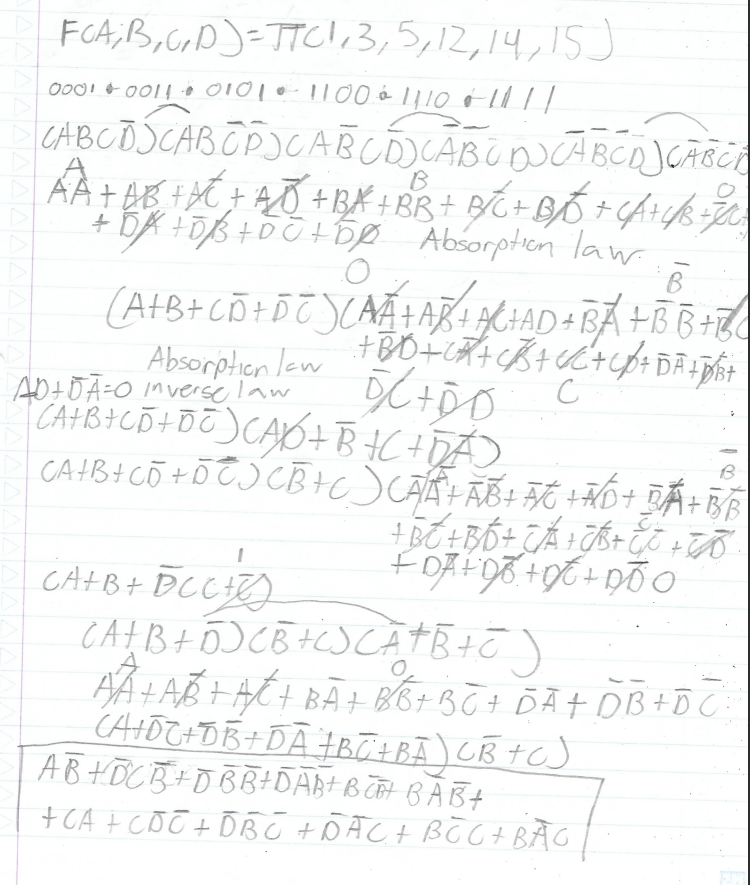 F(A,B,C,D)=π(1,3,5,12,14,15)
0001 • 0011 • 0101 • 1100 • 1110 • 1111
(ABCD̅)(ABC̅D̅)(AB̅CD̅)(A̅B̅CD)(A̅B̅C̅D)(A̅B̅C̅D̅
A B 0
AA + AB + AC̅ + AD̅ + BA + BB + BC̅ + BD̅ + CA + CB + C̅C
+ D̅A + D̅B + D̅C̅ + D̅D̅ Absorption law
0 B̅
(A+B+CD̅+D̅C̅)(AA̅+AB̅+AC+AD+B̅A̅+B̅B̅+B̅C
+B̅D+CA̅+CB̅+CC+CD+D̅A̅+D̅B̅+
Absorption law D̅C+D̅D C
AD+D̅A̅=0 inverse law
(A+B+CD̅+D̅C̅)(AD+B̅+C+D̅A̅)
(A+B+CD̅+D̅C̅)(B̅+C)(A̅A̅+A̅B̅+A̅C̅+A̅D̅+B̅A̅+B̅B̅
+B̅C̅+B̅D̅+C̅A̅+C̅B̅+C̅C̅+C̅D̅
+DA̅+DB̅+DC̅+DD̅ 0
1
(A+B+D̅(C+C̅)
(A+B+D̅)(B̅+C)(A̅+B̅+C̅)
A 0
AA̅+AB̅+AC̅+BA̅+BB̅+BC̅+D̅A̅+D̅B̅+D̅C̅
(A+D̅C̅+D̅B̅+D̅A̅+BC̅+BA̅)(B̅+C)
AB̅+D̅C̅B̅+D̅B̅B̅+D̅A̅B̅+BC̅B̅+BA̅B̅+
+CA+CD̅C̅+D̅B̅C+D̅A̅C+BC̅C+BA̅C